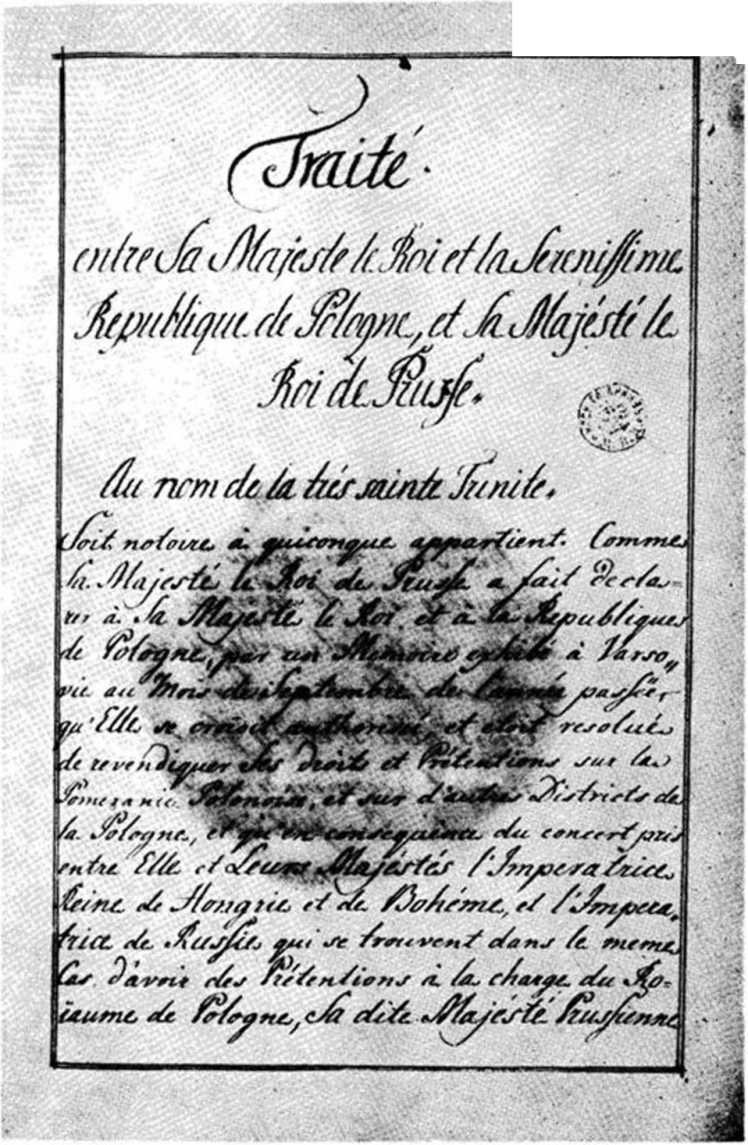 Traité.
entre Sa Majeste le Roi et la Serenissime
Republique de Pologne, et Sa Majésté le
Roi de Prusse.
Au nom de la trés sainte Trinite.
Soit notoire à quiconque appartient. Comme
Sa Majesté le Roi de Prusse a fait decla=
rer à Sa Majesté le Roi et à la Republique
de Pologne, par un Memoire exhibé à Varso„
vie au Mois de Septembre de l'année passée,
qu'Elle se croioit authorisé, et etoit resolué
de revendiquer Ses droits et Prétentions sur la
Pomeranie Polonoise, et sur d'autres Districts de
la Pologne, et qu'en consequence du concert pris
entre Elle et Leurs Majestés l'Imperatrice
Reine de Hongrie et de Bohéme, et l'Impera„
trice de Russie qui se trouvent dans le meme
Cas d'avoir des Prétentions à la charge du Ro=
iaume de Pologne, Sa dite Majésté Prussienne